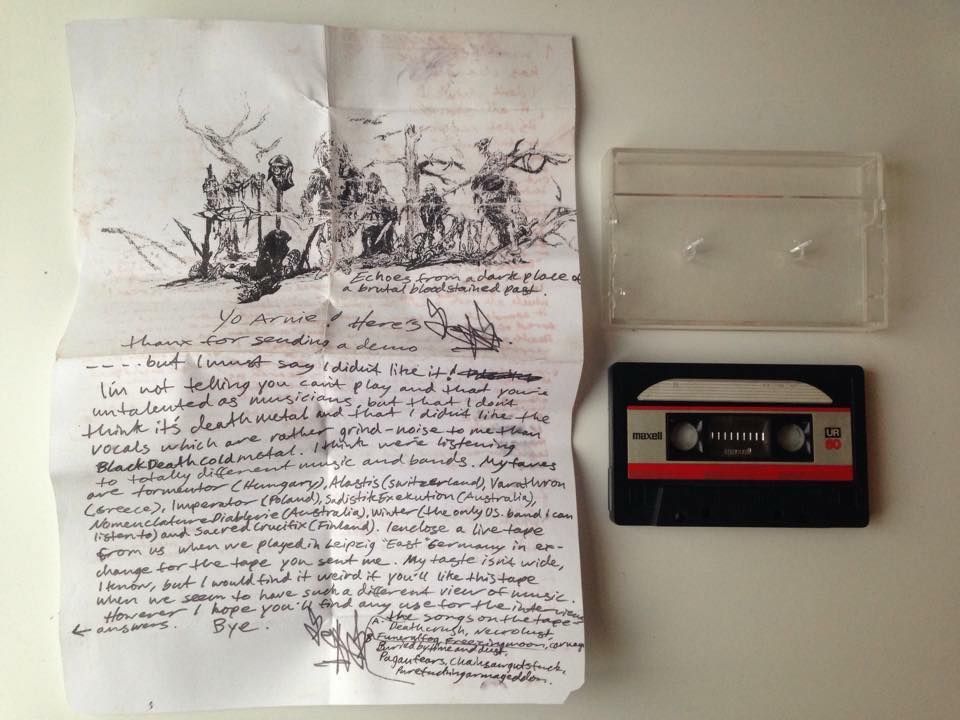 Echoes from a dark place of
a brutal bloodstained past.
Yo Arnie! Here's
thanx for sending a demo
----.but I must say I didn't like it!
I'm not telling you can't play and that you're
untalented as musicians, but that I don't
think it's death metal and that I didn't like the
vocals which are rather grind-noise to me than
Black Death cold metal. I think we're listening
to totally different music and bands. My faves
are Tormentor (Hungary), Alastis (Switzerland), Varathron
(Greece), Imperator (Poland), Sadistik Exekution (Australia),
Nomenclature Diablerie (Australia), Winter (the only U.S. band I can
listen to) and Sacred Crucifix (Finland). I enclose a live tape
from us when we played in Leipzig "East" Germany in ex-
change for the tape you sent me. My taste isn't wide,
I know, but I would find it weird if you'll like this tape
when we seem to have such a different view of music.
However I hope you'll find any use for the interview
← answers. Bye.
the songs on the tape
A. Deathcrush, necrolust,
B. Funeralfog, Freezingmoon, carnage
Buried by time and dust,
Pagan fears, chainsawgutsfuck,
Purefuckingarmageddon.
maxell
UR
60
maxell